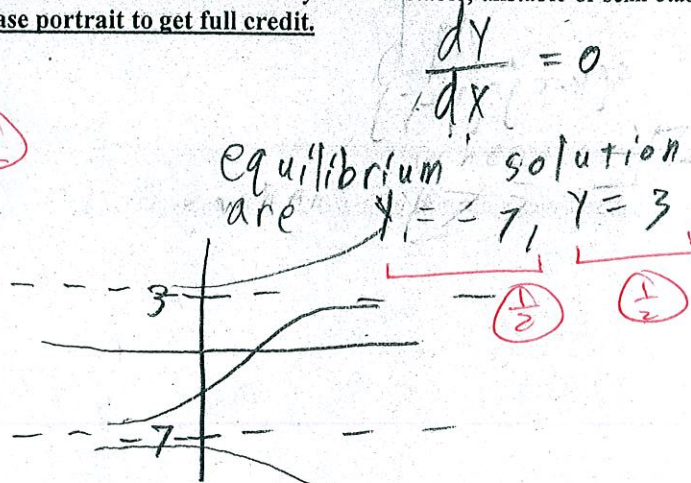 ase portrait to get full credit.
dy
dx
= 0
equilibrium solution
are y = -7, y = 3
1/2 1/2
3
-7